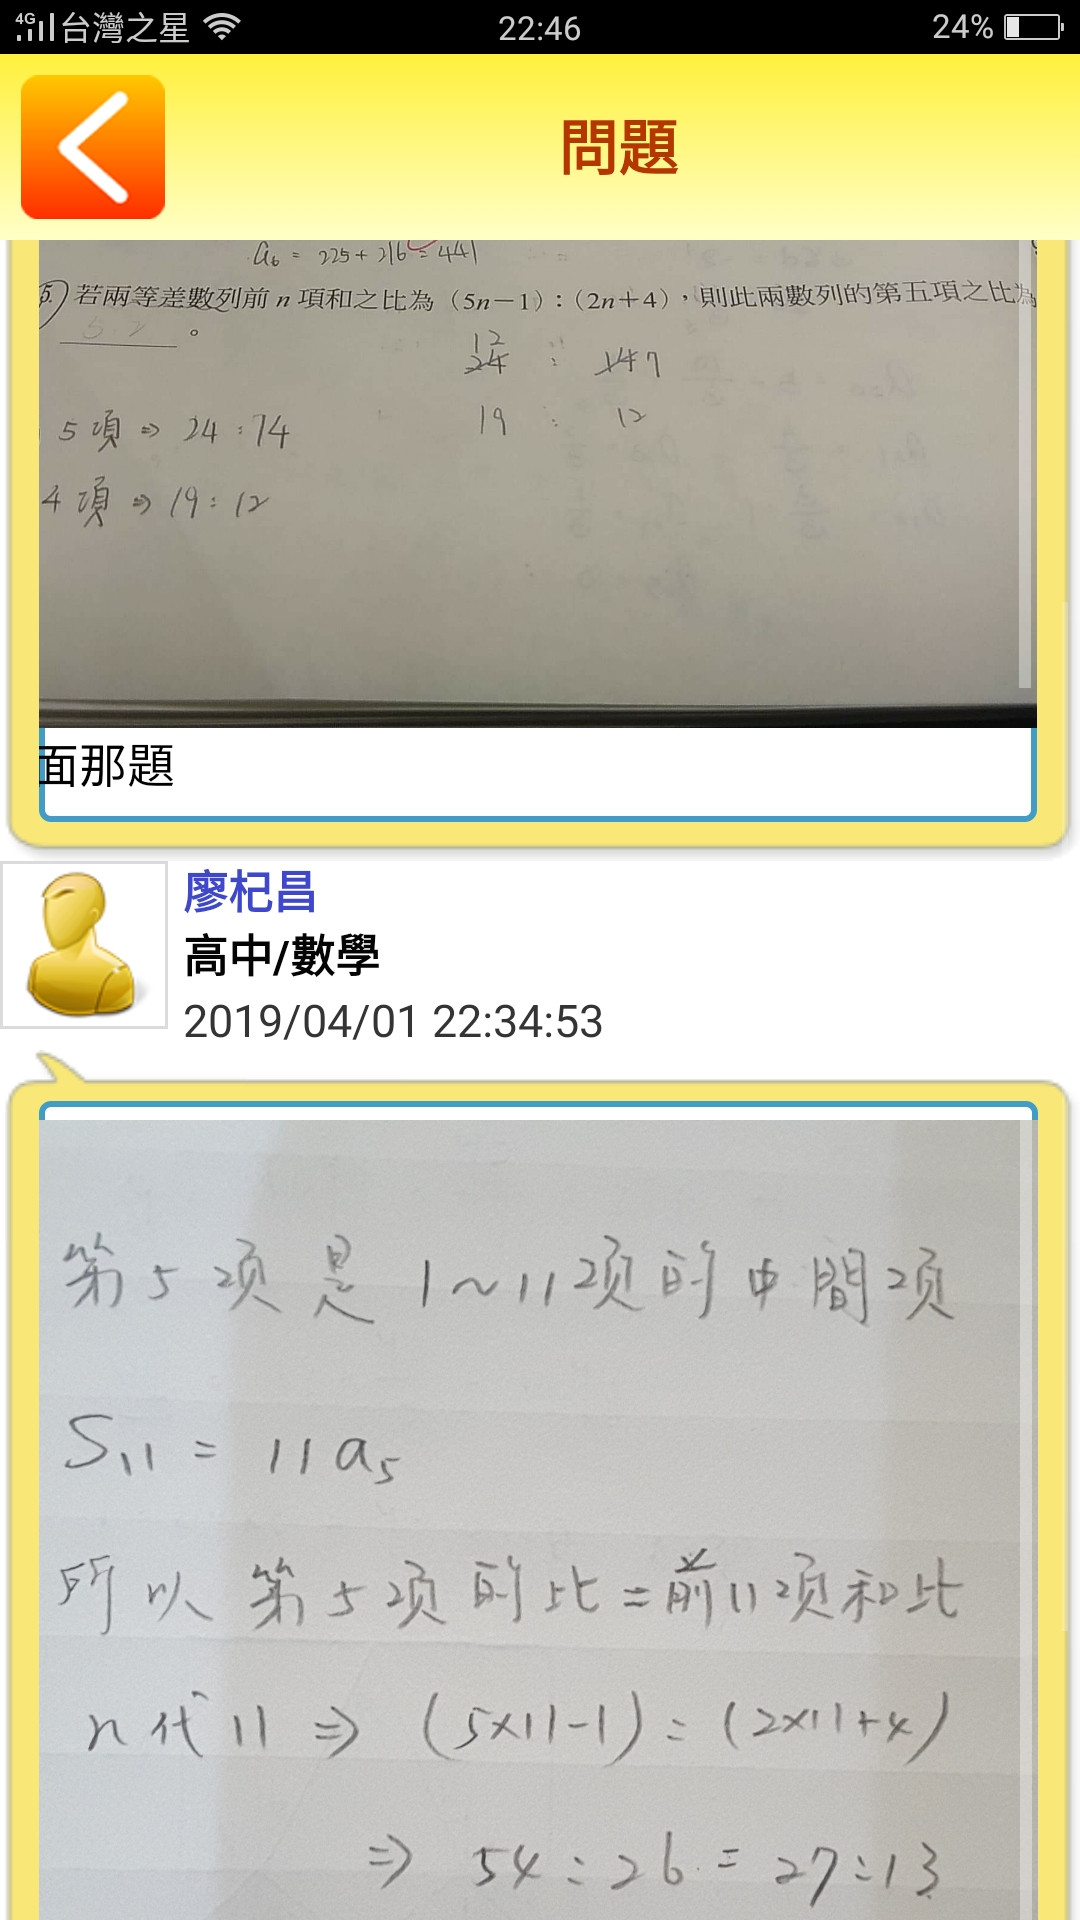 4G 台灣之星 22:46 24%
問題
a₆ = 225+216=441
5. 若兩等差數列前 n 項和之比為 (5n－1)：(2n＋4)，則此兩數列的第五項之比為
5:2 。
12
24 : 14 7
19 : 12
5 項 ⇒ 24 : 14
4 項 ⇒ 19 : 12
面那題
廖杞昌
高中/數學
2019/04/01 22:34:53
第 5 项 是 1～11 项 的 中 間 项
S₁₁ = 11 a₅
所以 第 5 项 的 比 = 前 11 项 和 比
n 代 11 ⇒ (5×11-1) : (2×11+4)
⇒ 54 : 26 = 27 : 13